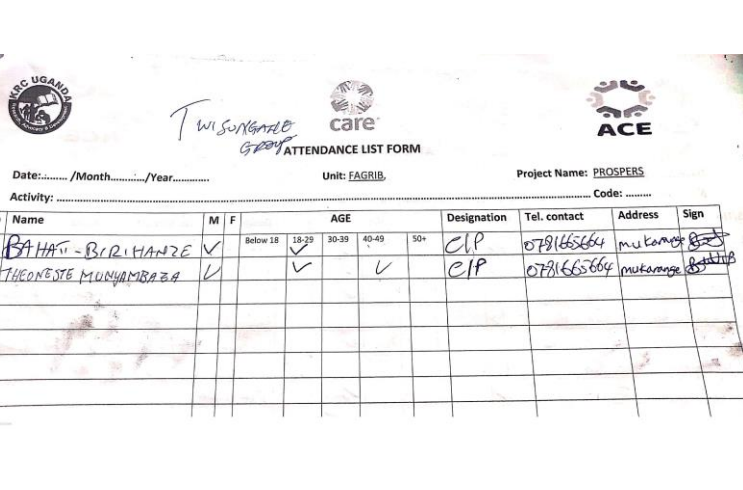 KRC UGANDA
TWISUNGANE
GROUP
care
ACE
ATTENDANCE LIST FORM
Date:......... /Month............/Year.............
Unit: FAGRIB,
Project Name: PROSPERS
Activity: ........ Code: .........
Name M F AGE Designation Tel. contact Address Sign
Below 18 18-29 30-39 40-49 50+
BAHATI - BIRIHANZE ✓ ✓ CIP 0781665664 mukarange
THEONESTE MUNYAMBAZA ✓ ✓ ✓ CIP 0781665664 mukarange